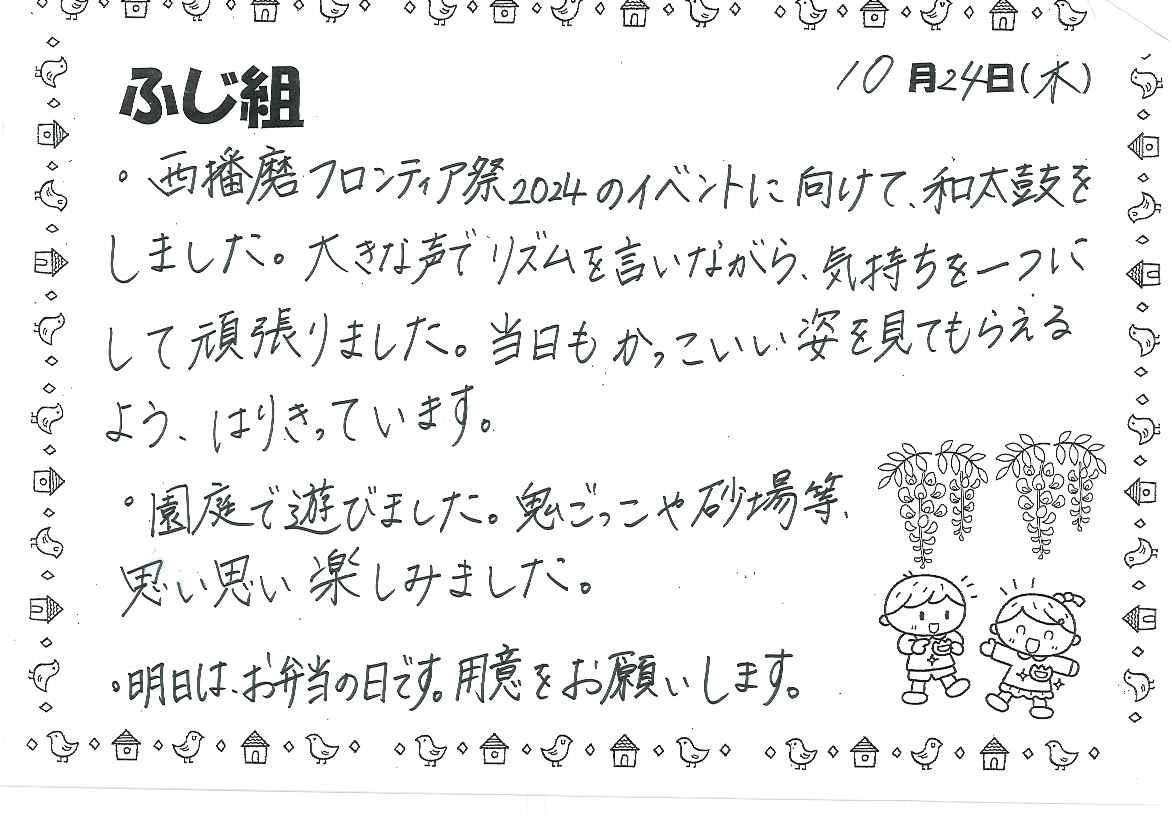 ふじ組
10月24日(木)
。西播磨フロンティア祭2024のイベントに向けて、和太鼓を
しました。大きな声でリズムを言いながら、気持ちを一つに
して頑張りました。当日もかっこいい姿を見てもらえる
よう、はりきっています。
。園庭で遊びました。鬼ごっこや砂場等、
思い思い楽しみました。
。明日は、お弁当の日です。用意をお願いします。